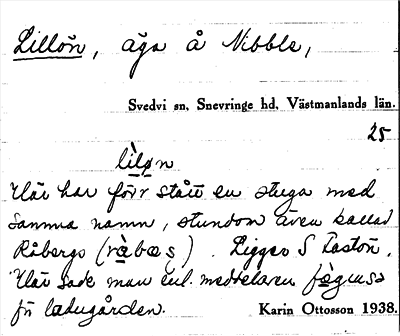 Lillön, äga å Nibble,
Svedvi sn, Snevringe hd, Västmanlands län.
25
lìløn
Här har förr stått en stuga med
samma namn, stundom även kallad
Råbergs (). Ligger S Tastön.
Här sade man enl. meddelaren
för ladugården.
Karin Ottosson 1938.